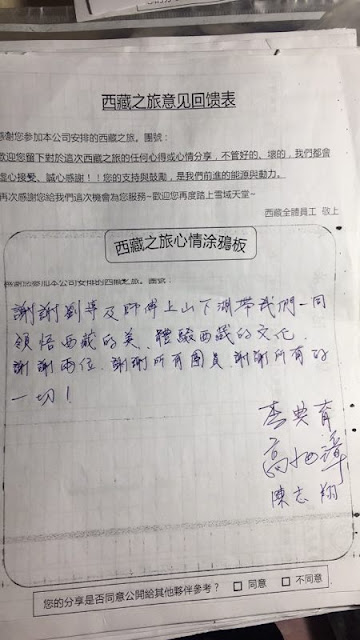 西藏之旅意见回馈表
感謝您参加本公司安排的西藏之旅。團號：
歡迎您留下對於這次西藏之旅的任何心得或心情分享，不管好的、壞的，我們都會
虛心接受、誠心感謝！！您的支持與鼓勵，是我們前進的能源與動力。
再次感謝您給我們這次機會為您服務~歡迎您再度踏上雪域天堂~
西藏全體員工 敬上
西藏之旅心情涂鴉板
感謝您参加本公司安排的西藏之旅。團號：
謝謝劉導及師傅上山下湖帶我們一同
領悟西藏的美、體驗西藏的文化
謝謝兩位、謝謝所有團員、謝謝所有的
一切！
李典育
陳志翔
您的分享是否同意公開給其他夥伴參考？ □ 同意 □ 不同意